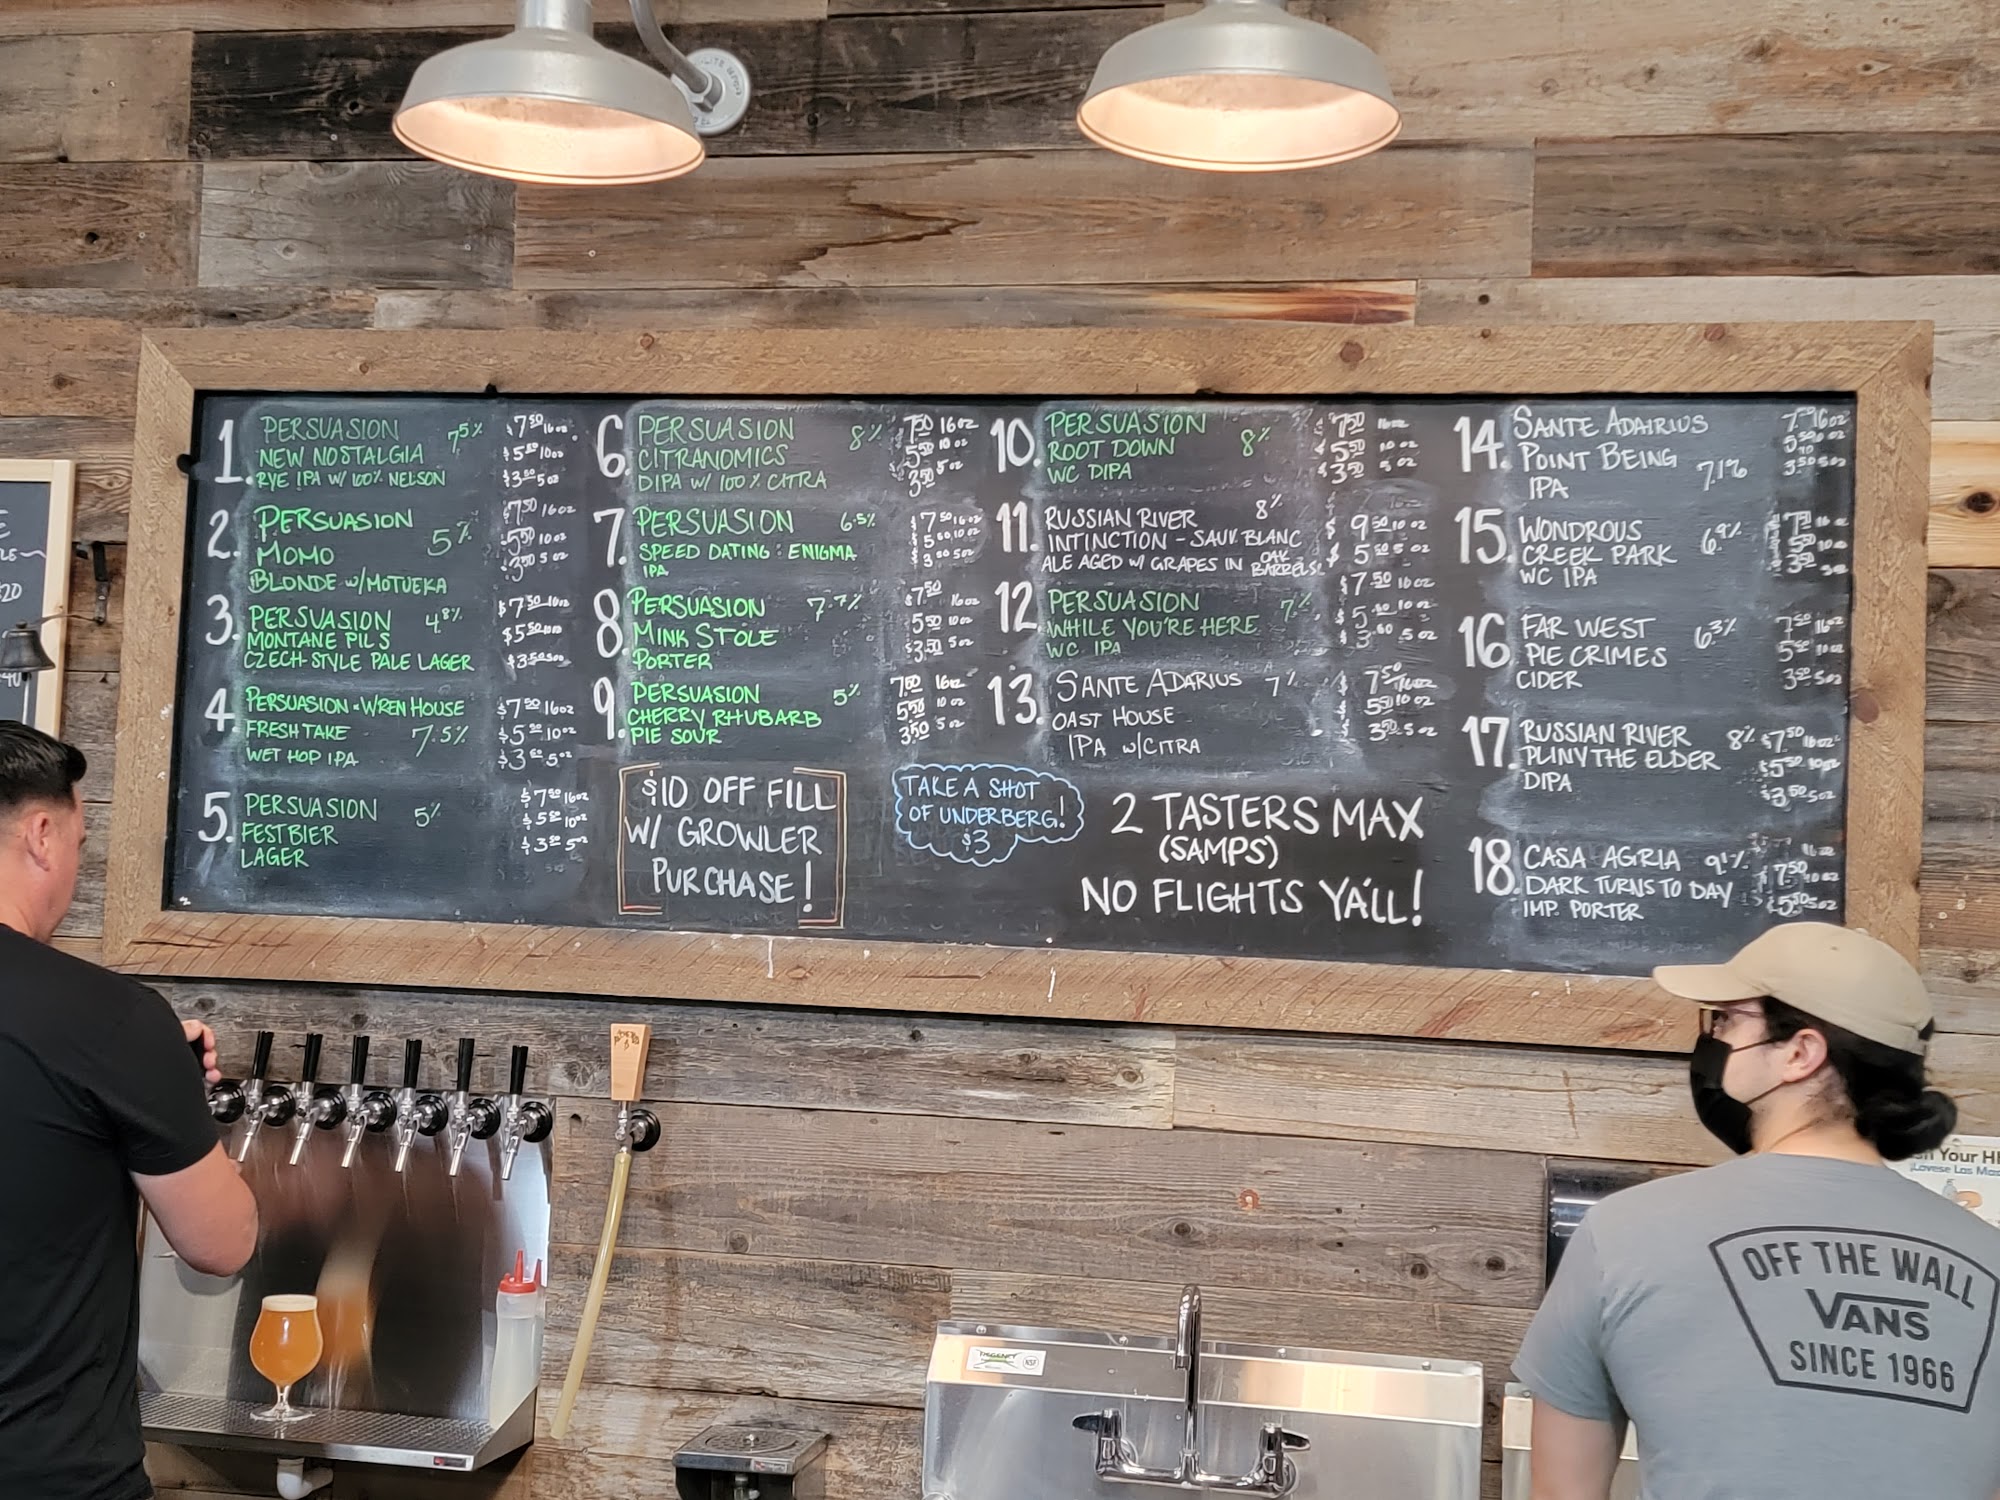 1. PERSUASION 7.5% $7.50 16oz
NEW NOSTALGIA $5.50 10oz
RYE IPA W/ 100% NELSON $3.50 5oz
2. PERSUASION 5% $7.50 16oz
MOMO $5.50 10oz
BLONDE W/MOTUEKA $3.50 5oz
3. PERSUASION 4.8% $7.50 16oz
MONTANE PILS $5.50 10oz
CZECH-STYLE PALE LAGER $3.50 5oz
4. PERSUASION • WREN HOUSE $7.50 16oz
FRESH TAKE 7.5% $5.50 10oz
WET HOP IPA $3.50 5oz
5. PERSUASION 5% $7.50 16oz
FESTBIER $5.50 10oz
LAGER $3.50 5oz
6. PERSUASION 8% 7.50 16oz
CITRANOMICS 5.50 10oz
DIPA W/ 100% CITRA 3.50 5oz
7. PERSUASION 6.5% $7.50 16oz
SPEED DATING: ENIGMA $5.50 10oz
IPA $3.50 5oz
8. PERSUASION 7.7% $7.50 16oz
MINK STOLE 5.50 10oz
PORTER 3.50 5oz
9. PERSUASION 5% 7.50 16oz
CHERRY RHUBARB 5.50 10oz
PIE SOUR 3.50 5oz
$10 OFF FILL
W/ GROWLER
PURCHASE!
TAKE A SHOT
OF UNDERBERG!
$3
10. PERSUASION 8% $7.50 16oz
ROOT DOWN $5.50 10oz
WC DIPA $3.50 5oz
11. RUSSIAN RIVER 8% $9.50 10oz
INTINCTION - SAUV. BLANC $5.50 5oz
ALE AGED W/ GRAPES IN OAK BARRELS
12. PERSUASION 7% $7.50 16oz
WHILE YOU'RE HERE $5.50 10oz
WC IPA $3.50 5oz
13. SANTE ADARIUS 7% $7.50 16oz
OAST HOUSE 5.50 10oz
IPA W/CITRA 3.50 5oz
2 TASTERS MAX
(SAMPS)
NO FLIGHTS YA'LL!
14. SANTE ADAIRIUS 7.50 16oz
POINT BEING 7.1% 5.50 10oz
IPA 3.50 5oz
15. WONDROUS 6.9% 7.50 16oz
CREEK PARK 5.50 10oz
WC IPA 3.50 5oz
16. FAR WEST 6.3% 7.50 16oz
PIE CRIMES 5.50 10oz
CIDER 3.50 5oz
17. RUSSIAN RIVER 8% $7.50 16oz
PLINY THE ELDER $5.50 10oz
DIPA $3.50 5oz
18. CASA AGRIA 9.1%
DARK TURNS TO DAY $7.50 10oz
IMP. PORTER $5.50 5oz
OFF THE WALL
VANS
SINCE 1966
Your
NSF